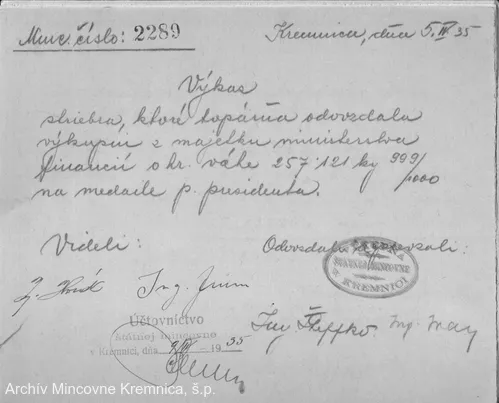 Minc. číslo: 2289
Kremnica, dňa 5.IV 35
Výkaz
striebra, ktoré topáreň odovzdala
výkupni z majetku ministerstva
financií o hr. váhe 257.121 kg 999/1000
na medaile p. presidenta.
Videli:
Odovzdali a prevzali:
ŠTÁTNEJ MINCOVNE
V KREMNICI
Ing.
Účtovníctvo
štátnej mincovne
v Kremnici, dňa 9/IV 1935
Ing. Šteffko.
Ing. May
Archív Mincovne Kremnica, š.p.